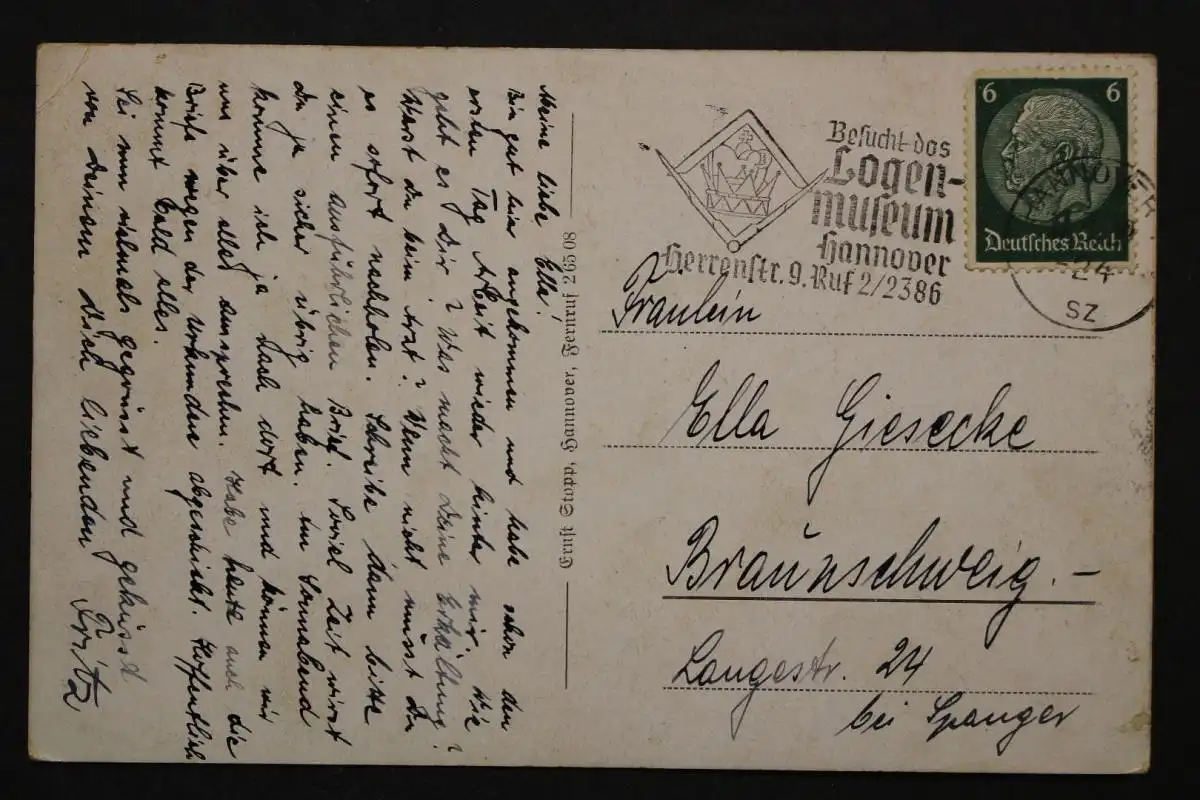 Meine liebe Ella!
Bin gut hier angekommen und habe schon den
ersten Tag Arbeit wieder hinter mir. Wie
geht es Dir? Was macht Deine Erkältung?
Warst Du beim Arzt? Wenn nicht musst Du
es sofort nachholen. Schreibe dann bitte
einen ausführlichen Brief. Soviel Zeit wirst
du ja sicher übrig haben. Am Sonnabend
komme ich ja nach dort und können wir
uns über alles aussprechen. Habe heute auch die
Briefe wegen der Urkunden abgeschickt. Hoffentlich
kommt bald alles.
Sei nun vielmals gegrüsst und geküsst
von Deinem dich liebenden Fritz
Ernst Stopp, Hannover, Fernruf 2 65 08
Besucht das
Logen-
museum
Hannover
Herrenstr. 9. Ruf 2/2386
6 6
Deutsches Reich
HANNOVER
24
SZ
Fräulein
Ella Giesecke
Braunschweig.-
Langestr. 24
bei Spanger